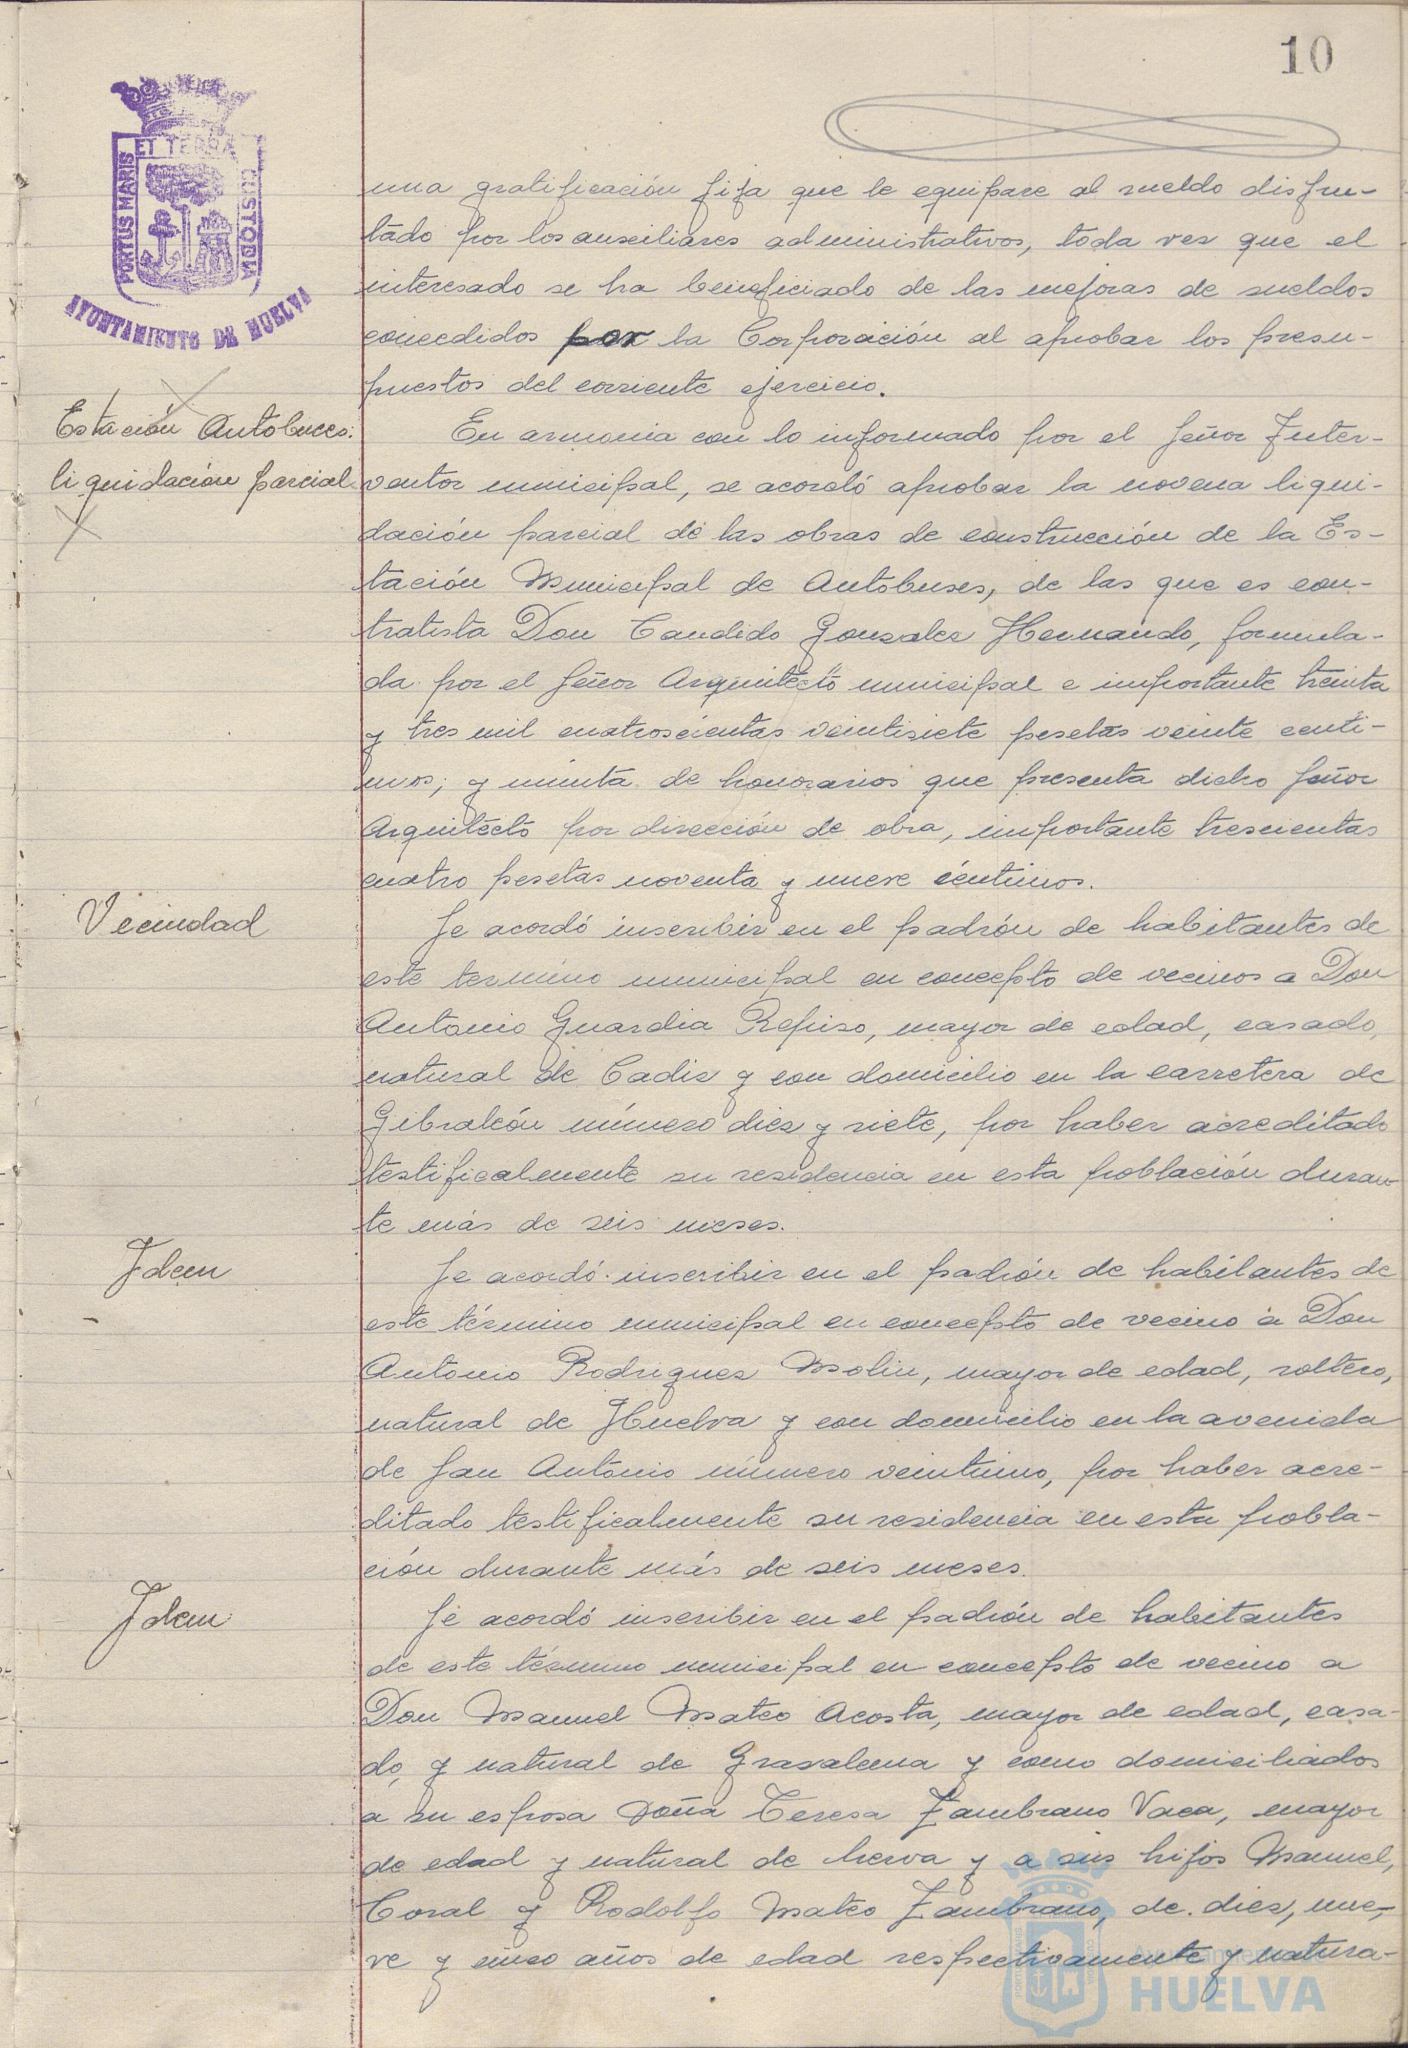 10
ET TERRA
PORTUS MARIS
CUSTODIA
AYUNTAMIENTO DE HUELVA
una gratificación fija que le equipare al sueldo disfru-
tado por los auxiliares administrativos, toda vez que el
interesado se ha beneficiado de las mejoras de sueldos
concedidos por la Corporación al aprobar los presu-
puestos del corriente ejercicio.
Estación Autobuces:
liquidación parcial.
En armonia con lo informado por el Señor Inter-
ventor municipal, se acordó aprobar la novena liqui-
dación parcial de las obras de construcción de la Es-
tación Municipal de Autobuses, de las que es con-
tratista Don Candido Gonzalez Hernando, formula-
da por el Señor Arquitecto municipal e importante treinta
y tres mil cuatroscientas veintisiete pesetas veinte centi-
mos; y minuta de honorarios que presenta dicho Señor
Arquitecto por dirección de obra, importante trescientas
cuatro pesetas noventa y nueve céntimos.
Vecindad
Se acordó inscribir en el padrón de habitantes de
este termino municipal en concepto de vecinos a Don
Antonio Guardia Repiso, mayor de edad, casado,
natural de Cadiz y con domicilio en la carretera de
Gibraleón número diez y siete, por haber acreditado
testificalmente su residencia en esta población duran-
te más de seis meses.
Idem
Se acordó inscribir en el padrón de habitantes de
este término municipal en concepto de vecino a Don
Antonio Rodriguez Molin, mayor de edad, soltero,
natural de Huelva y con domicilio en la avenida
de San Antonio número veintiuno, por haber acre-
ditado testificalmente su residencia en esta pobla-
ción durante más de seis meses.
Idem
Se acordó inscribir en el padrón de habitantes
de este término municipal en concepto de vecino a
Don Manuel Mateo Acosta, mayor de edad, casa-
do, y natural de Grasalema y como domiciliados
a su esposa Doña Teresa Zambrano Vaca, mayor
de edad y natural de herva y a sus hijos Manuel,
Coral y Rodolfo Mateo Zambrano, de diez, nue-
ve y cinco años de edad respectivamente y natura-
Ayuntamiento de
HUELVA